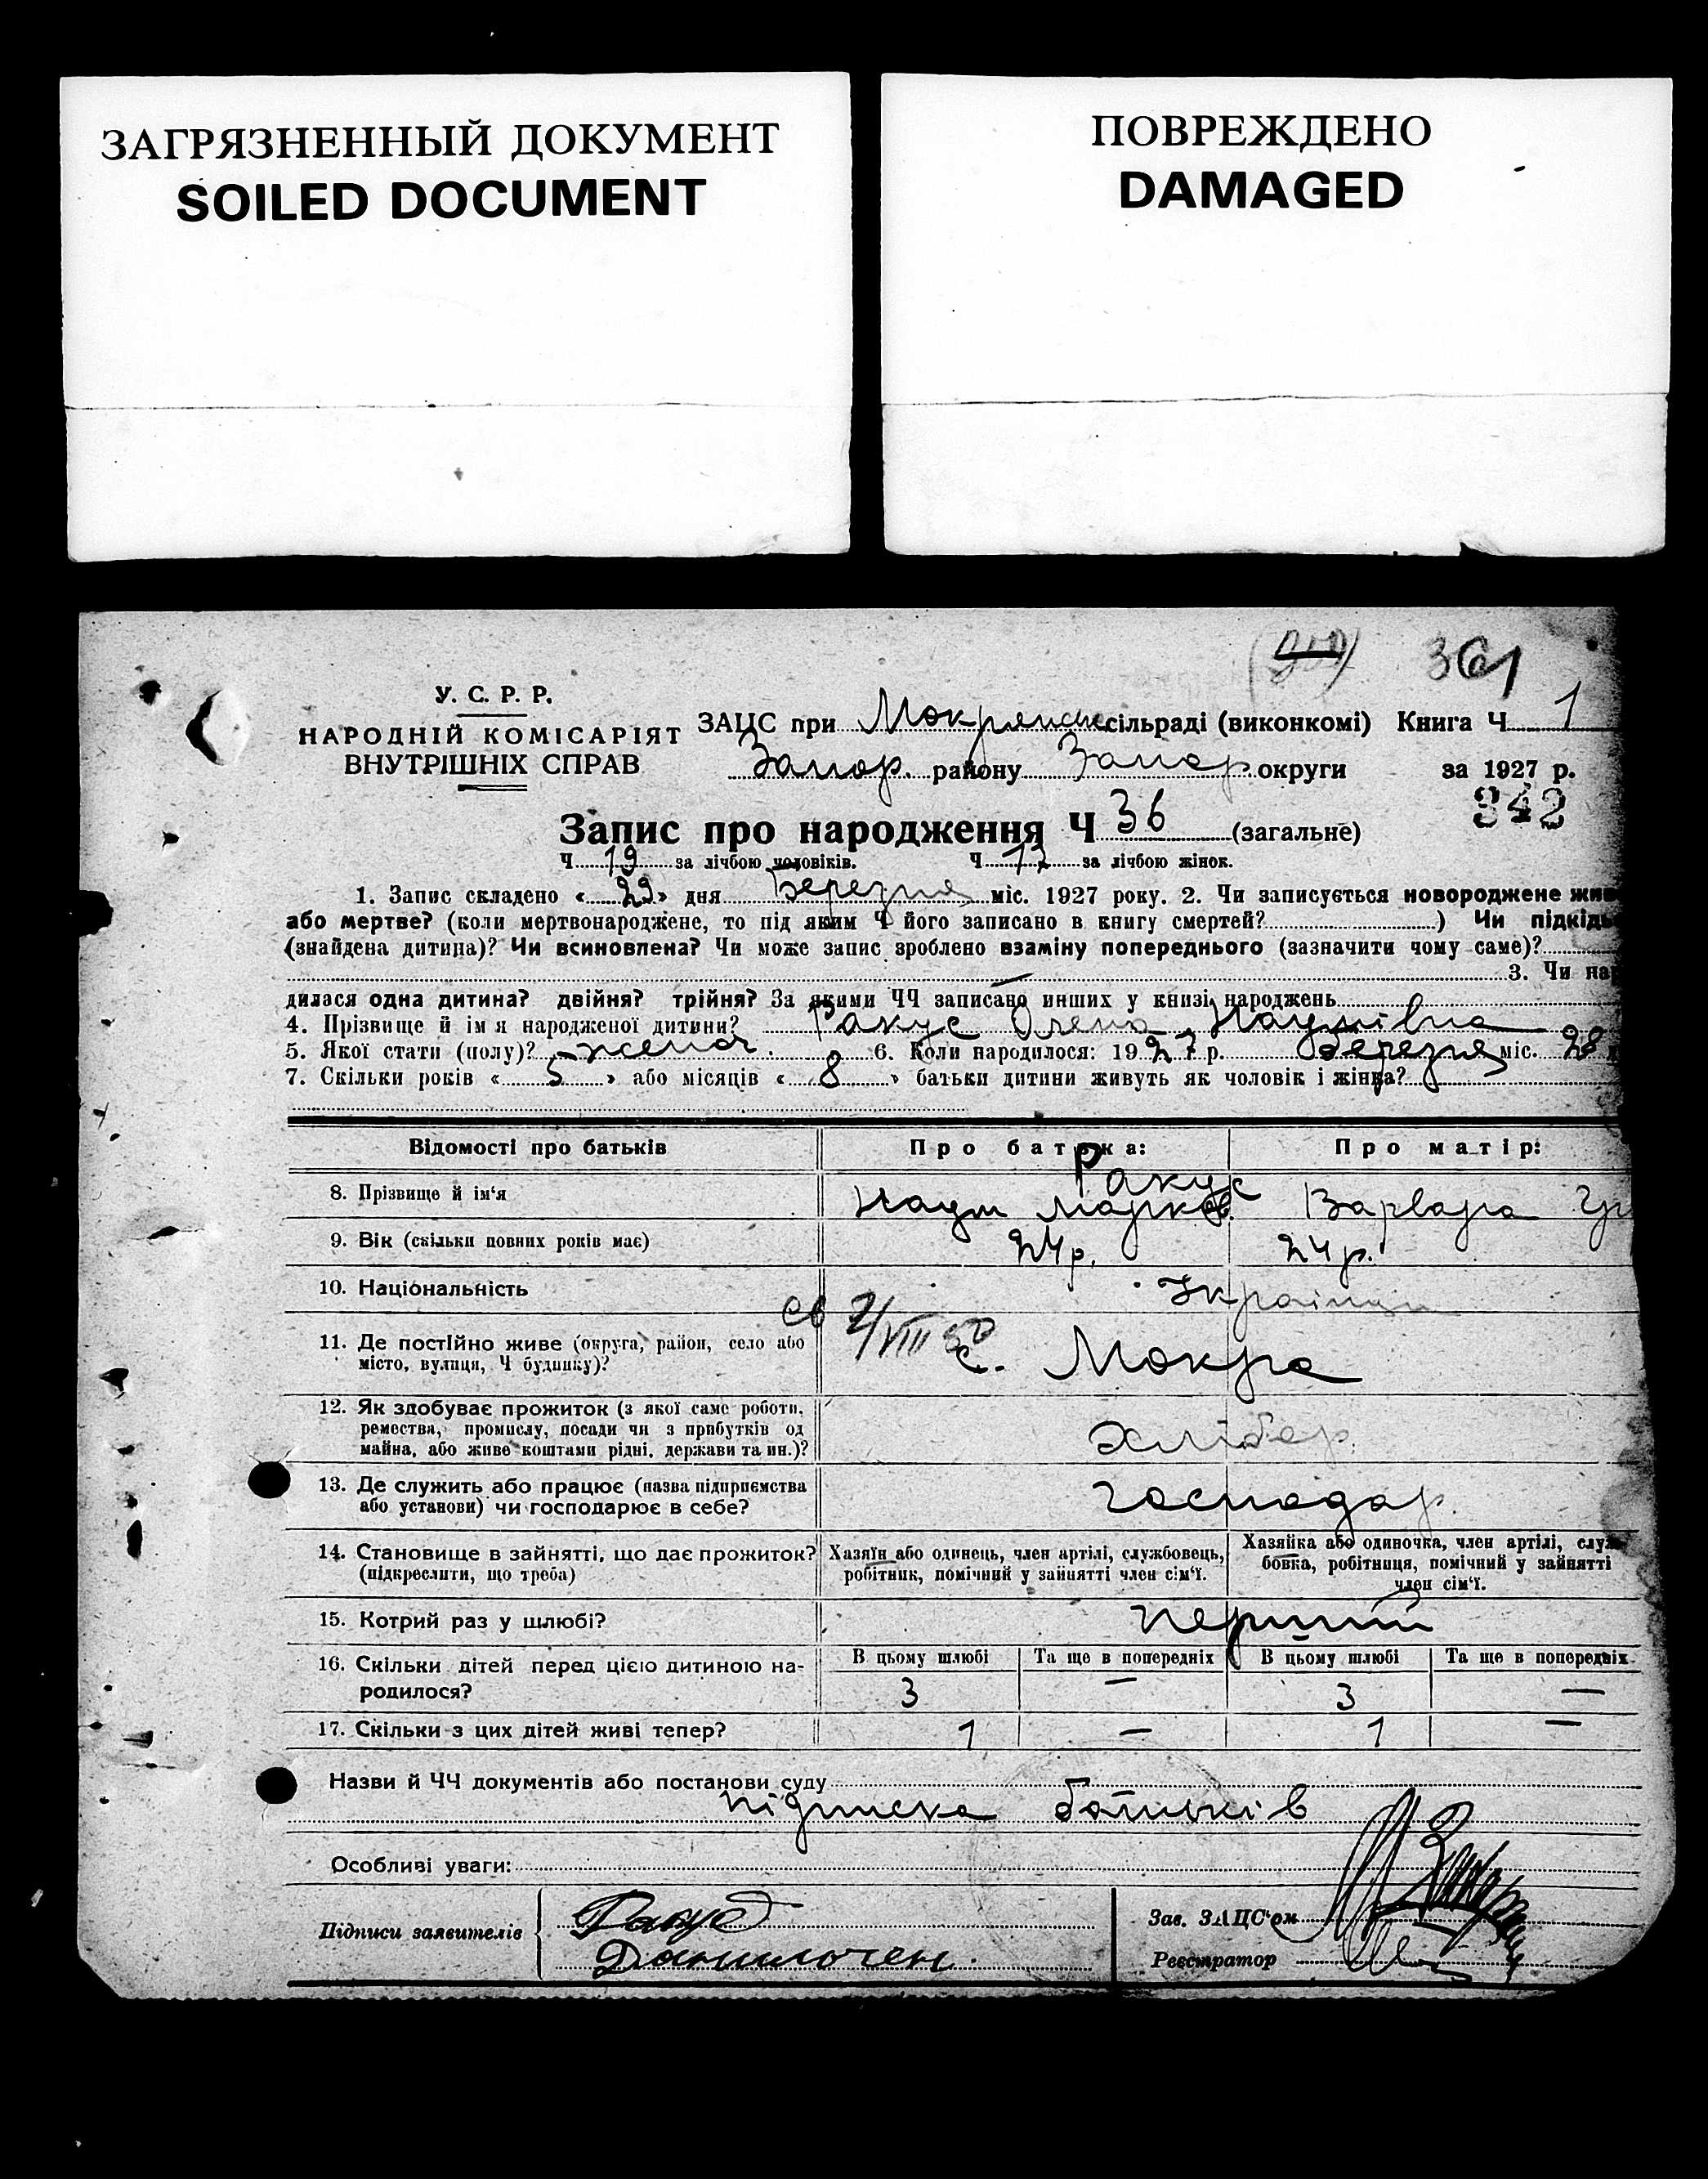 ЗАГРЯЗНЕННЫЙ ДОКУМЕНТ
SOILED DOCUMENT
ПОВРЕЖДЕНО
DAMAGED
361
У. С. Р. Р.
НАРОДНІЙ КОМІСАРІЯТ
ВНУТРІШНІХ СПРАВ
ЗАЦС при Мокрянск сільраді (виконкомі) Книга Ч 1
Запор. району Запор. округи за 1927 р.
342
Запис про народження Ч 36 (загальне)
Ч 19 за лічбою чоловіків. Ч 17 за лічбою жінок.
1. Запис складено « 29 » дня Березня міс. 1927 року. 2. Чи записується новороджене жив
або мертве? (коли мертвонароджене, то під яким Ч його записано в книгу смертей? ) Чи підкідь
(знайдена дитина)? Чи всиновлена? Чи може запис зроблено взаміну попереднього (зазначити чому саме)?
3. Чи на
дилася одна дитина? двійня? трійня? За якими ЧЧ записано инших у книзі народжень
4. Прізвище й ім я народженої дитини? Ракус Олена Наумівна
5. Якої стати (полу)? - женоч. 6. Коли народилося: 1927 р. березня міс. 28
7. Скільки років « 5 » або місяців « 8 » батьки дитини живуть як чоловік і жінка?
Відомості про батьків Про батька: Про матір:
Ракус
8. Прізвище й ім'я Наум Марков. Варвара
9. Вік (скільки повних років має) 24 р. 24 р.
10. Національність Українци
11. Де постійно живе (округа, район, село або
місто, вулиця, Ч будинку)? с. Мокра
12. Як здобуває прожиток (з якої саме роботи,
ремества, промислу, посади чи з прибутків од
майна, або живе коштами рідні, держави та ин.)? хлібор.
13. Де служить або працює (назва підприємства
або установи) чи господарює в себе? господар.
14. Становище в зайнятті, що дає прожиток?
(підкреслити, що треба)
Хазяїн або одинець, член артілі, службовець,
робітник, помічний у зайнятті член сім'ї.
Хазяйка або одиночка, член артілі, служ
бовка, робітниця, помічний у зайнятті
член сім'ї.
15. Котрий раз у шлюбі? перший
16. Скільки дітей перед цією дитиною на-
родилося?
В цьому шлюбі Та ще в попередніх В цьому шлюбі Та ще в попередніх
3 — 3 —
17. Скільки з цих дітей живі тепер? 1 — 1 —
Назви й ЧЧ документів або постанови суду
підписка батьків
Особливі уваги:
Підписи заявителів Ракус
Данилочен.
Зав. ЗАЦС'ом
Реєстратор